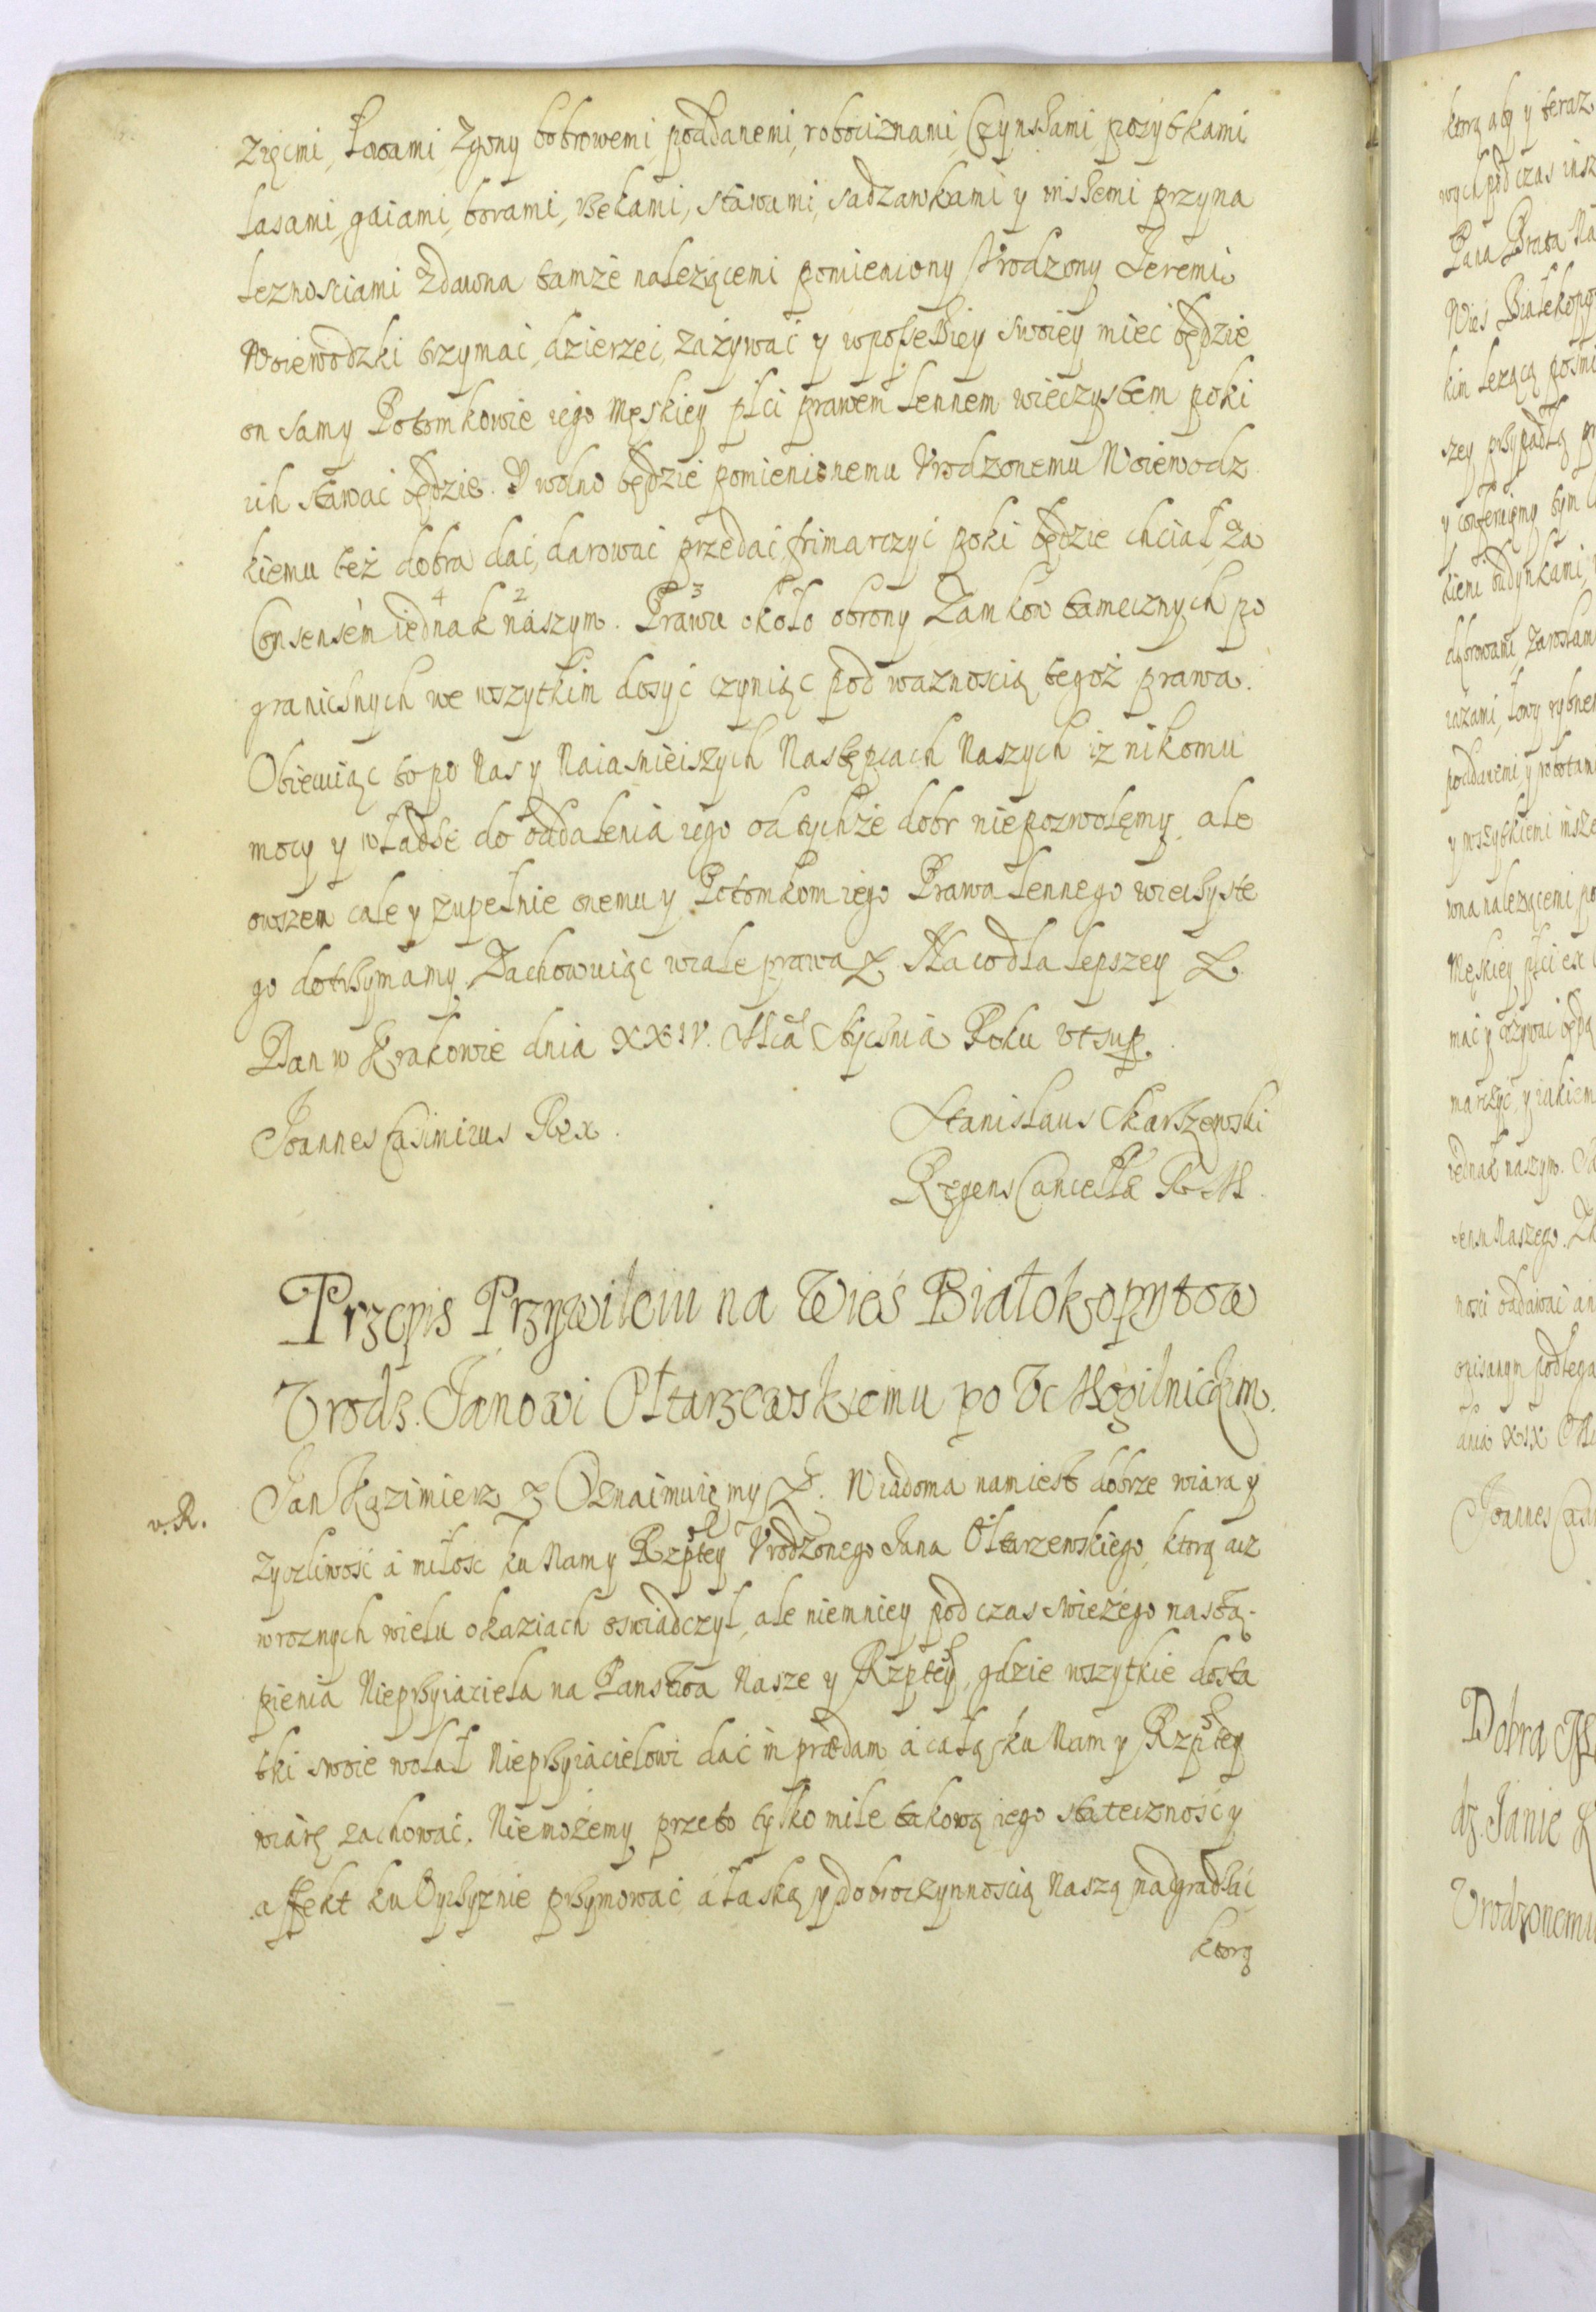 zięcmi, Łowami Zgony bobrowemi, poddanemi, robociznami, Czynszami pożytkami
lasami, gaiami, borami, rzekami, stawami, sadzawkami y inszemi przyna
leznosciami zdawna tamże należącemi pomieniony Vrodzony Jeremi
Woiewodzki trzymać, dzierżeć, zażywać y w possessiey swoiey mieć będzie
on sam y Potomkowie iego Męskiey płci prawem lennem wieczystem poki
ich stawać będzie. Y wolno będzie pomienionemu Vrodzonemu Woiewodz
kiemu też dobra dać, darować przedać, frimarczyć poki będzie chciał, za
Consensem iednak naszym. Prawu około obrony Zamkow tamecznych po
4 2 3
granicznych we wszytkim dosyć czyniąc pod waznoscią tegoż prawa.
Obiecuiąc to po Nas y Naiasnieiszych Następcach Naszych iz nikomu
mocy y władze do oddalenia iego od tychże dobr niepozwolemy, ale
owszem cale y zupełnie onemu y Potomkom iego Prawa lennego wieczyste
go dotrzymamy. Zachowuiąc wcale prawa &. Na co dla lepszey &.
Dan w Krakowie dnia XXIV. Mca Stycznia Roku vt sup.
Joannes Casimirus Rex.
Stanislaus Skarszewski
Regens Cancellæ R. M.
Przepis Przywileiu na Wieś Białokopytow
Vrodz. Janowi Ołtarzewskiemu po Mogilnickim.
v. R.
Jan Kazimierz z Oznaimuięmy &. Wiadoma nam iest dobrze wiara y
życzliwość á miłosc ku Nam y Rzptey Vrodzonego Jana Ołtarzewskiego, ktorą acz
w roznych wielu okaziach oswiadczył, ale niemniey pod czas swieżego nastą-
pienia Nieprzyiaciela na Panstwa Nasze y Rzptey, gdzie wszytkie dosta
tki swoie wolał Nieprzyiacielowi dać in prædam á całą ku Nam y Rzptey
wiarę zachować. Niemożemy przeto tylko mile takową iego stateczność y
affekt ku Oyczyznie przymować á łaską y dobroczynnoscią Naszą nadgradzać
ktorą
ktorą aby y teraz
wych pod czas insz
Pana Brata Na
Wieś Białokopy
kim leżącą posmi
szey przypadłą pr
y conferuięmy tym
kiemi budynkami,
dąbrowami, Zaroslam
poddanemi y robotam
y wszytkiemi insze
wna nalezącemi po
Męskiey płci ex
mać y vżywać będą
marczyć, y iakiem
iednak naszym.
sensu Naszego.
nosci oddawać an
opisanym podlega
dnia XIX
Joannes Casi
Dobra
dz. Janie
Vrodzonemu